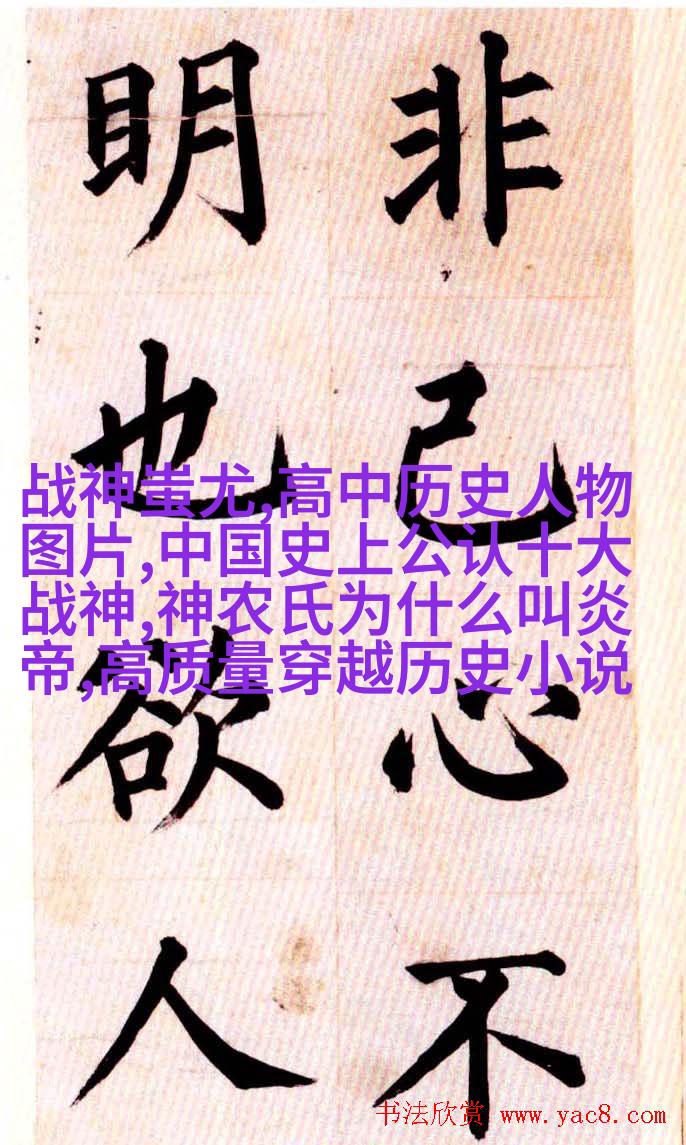 非己心不
明也欲人
战神蚩尤,高中历史人物
图片,中国史上公认十大
战神,神农氏为什么叫炎
帝,高质量穿越历史小说
书法欣赏 www.yac8.com